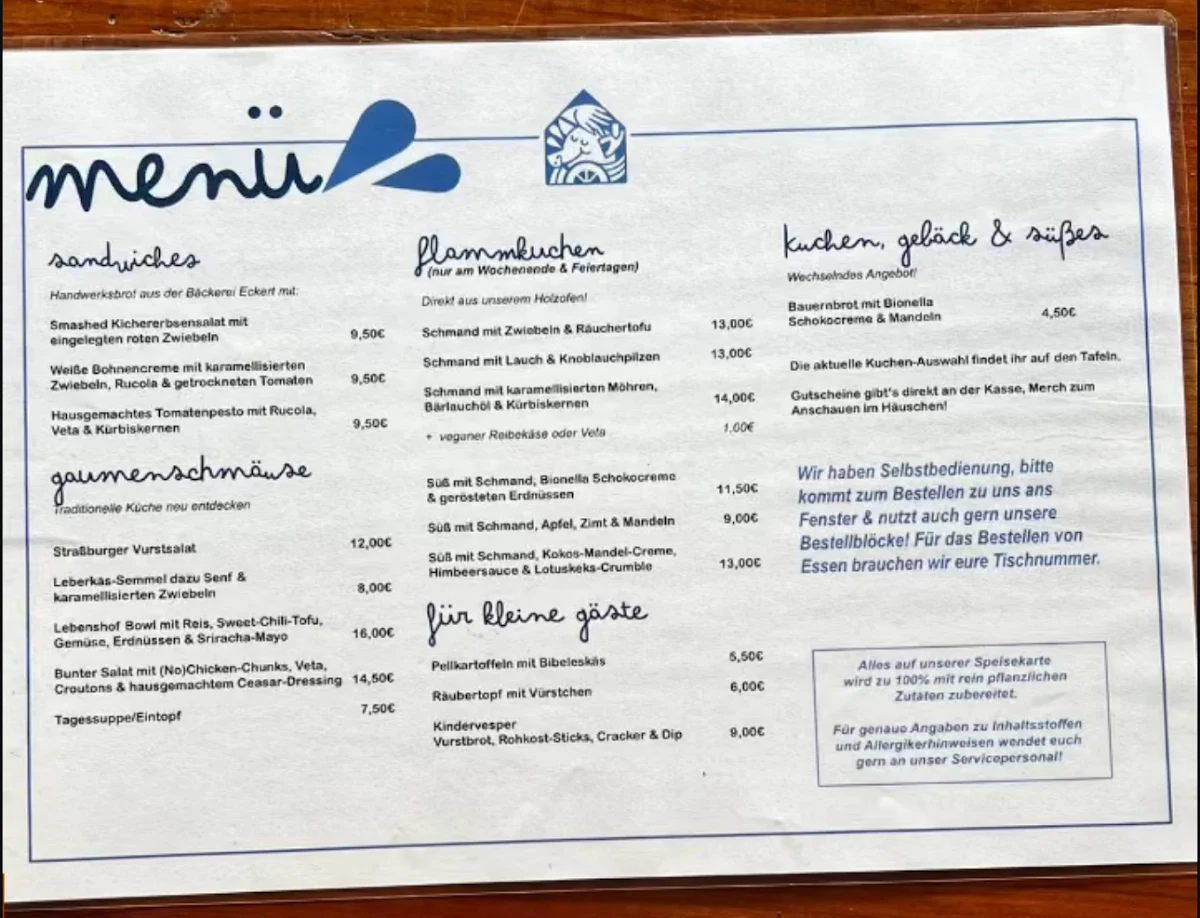 menü
sandwiches
Handwerksbrot aus der Bäckerei Eckert mit:
Smashed Kichererbsensalat mit
eingelegten roten Zwiebeln 9,50€
Weiße Bohnencreme mit karamellisierten
Zwiebeln, Rucola & getrockneten Tomaten 9,50€
Hausgemachtes Tomatenpesto mit Rucola,
Veta & Kürbiskernen 9,50€
gaumenschmäuse
Traditionelle Küche neu entdecken
Straßburger Vurstsalat 12,00€
Leberkäs-Semmel dazu Senf &
karamellisierten Zwiebeln 8,00€
Lebenshof Bowl mit Reis, Sweet-Chili-Tofu,
Gemüse, Erdnüssen & Sriracha-Mayo 16,00€
Bunter Salat mit (No)Chicken-Chunks, Veta,
Croutons & hausgemachtem Ceasar-Dressing 14,50€
Tagessuppe/Eintopf 7,50€
flammkuchen
(nur am Wochenende & Feiertagen)
Direkt aus unserem Holzofen!
Schmand mit Zwiebeln & Räuchertofu 13,00€
Schmand mit Lauch & Knoblauchpilzen 13,00€
Schmand mit karamellisierten Möhren,
Bärlauchöl & Kürbiskernen 14,00€
+ veganer Reibekäse oder Veta 1,00€
Süß mit Schmand, Bionella Schokocreme
& gerösteten Erdnüssen 11,50€
Süß mit Schmand, Apfel, Zimt & Mandeln 9,00€
Süß mit Schmand, Kokos-Mandel-Creme,
Himbeersauce & Lotuskeks-Crumble 13,00€
für kleine gäste
Pellkartoffeln mit Bibeleskäs 5,50€
Räubertopf mit Vürstchen 6,00€
Kindervesper
Vurstbrot, Rohkost-Sticks, Cracker & Dip 9,00€
kuchen, gebäck & süßes
Wechselndes Angebot!
Bauernbrot mit Bionella
Schokocreme & Mandeln 4,50€
Die aktuelle Kuchen-Auswahl findet ihr auf den Tafeln.
Gutscheine gibt's direkt an der Kasse, Merch zum
Anschauen im Häuschen!
Wir haben Selbstbedienung, bitte
kommt zum Bestellen zu uns ans
Fenster & nutzt auch gern unsere
Bestellblöcke! Für das Bestellen von
Essen brauchen wir eure Tischnummer.
Alles auf unserer Speisekarte
wird zu 100% mit rein pflanzlichen
Zutaten zubereitet.
Für genaue Angaben zu Inhaltsstoffen
und Allergikerhinweisen wendet euch
gern an unser Servicepersonal!